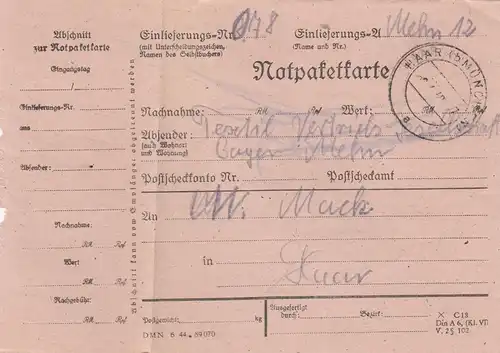 Abschnitt
zur Notpaketkarte
Eingangstag
/
Einlieferungs-Nr.
aus
Absender:
Nachnahme:
RM Rpf
Wert
RM Rpf
Nachgebühr:
RM Rpf
Abschnitt kann vom Empfänger abgetrennt werden
Einlieferungs-Nr. 0/78
(mit Unterscheidungszeichen,
Namen des Selbstbuchers)
Einlieferungs-A
(Name und Nr.)
12
Notpaketkarte
HAAR (b MÜNCHEN)
a
Nachnahme: RM Rpf Wert: RM
Absender: Textil
(auch Wohnort
und Wohnung)
Postscheckkonto Nr. Postscheckamt
An Mack
in Haar
Postgewicht: kg
Ausgefertigt
durch:
Bezirk:
DMN 6 44. 69070
X C18
Din A 6, (Kl. VII
V, 2 § 102